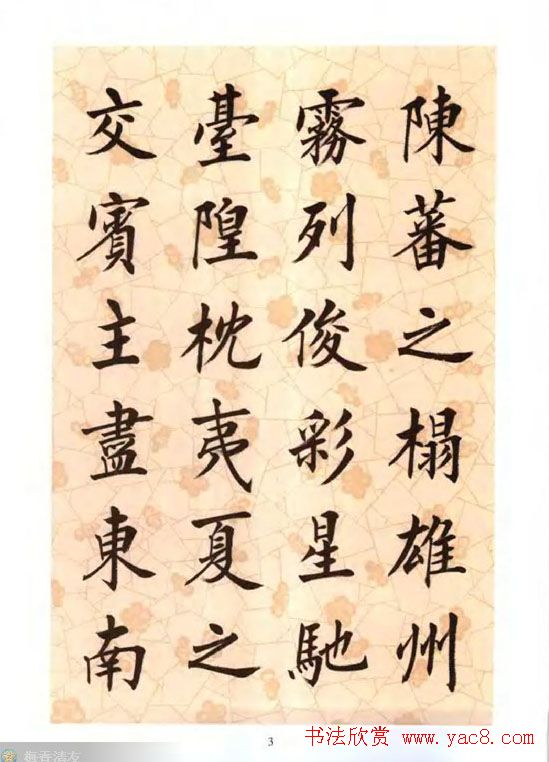 陳蕃之榻雄州
霧列俊彩星馳
臺隍枕夷夏之
交賓主盡東南
3
书法欣赏 www.yac8.com
梅香清友